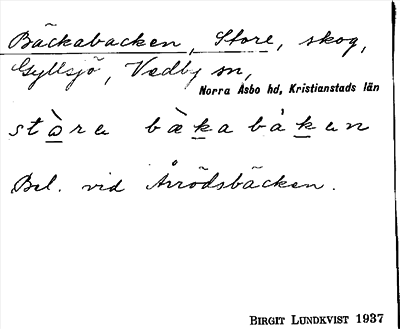 Bäckabacken, Store, skog,
Gyllsjö, Vedby sn,
Norra Åsbo hd, Kristianstads län
stòra bàka båkan
Bel. vid Årrödsbäcken.
BIRGIT LUNDKVIST 1937